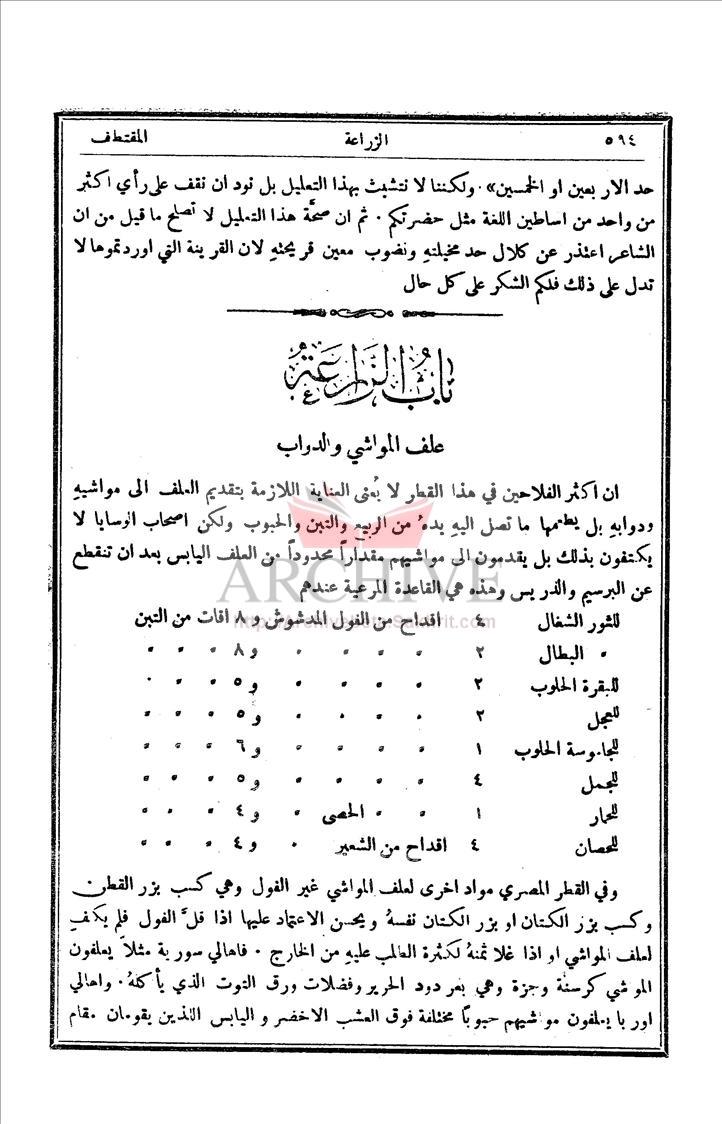 ٥٩٤ الزراعة المقتطف
حد الاربعين او الخمسين». ولكننا لا نتشبث بهذا التعليل بل نود ان نقف على رأي اكثر
من واحد من اساطين اللغة مثل حضرتكم . ثم ان صحَّة هذا التعليل لا تصلح ما قيل من ان
الشاعر اعتذر عن كلال حد مخيلتهِ ونضوب معين قريحتهِ لان القرينة التي اوردتموها لا
تدل على ذلك فلكم الشكر على كل حال
باب الزراعة
علف المواشي والدواب
ان اكثر الفلاحين في هذا القطر لا يُعنى العناية اللازمة بتقديم العلف الى مواشيهِ
ودوابهِ بل يطعمها ما تصل اليهِ يدهُ من الربيع والتبن والحبوب ولكن اصحاب الوسايا لا
يكتفون بذلك بل يقدمون الى مواشيهم مقداراً محدوداً من العلف اليابس بعد ان تنقطع
عن البرسيم والدريس وهذه هي القاعدة المرعية عندهم
ARCHIVE
للثور الشغال ٤ اقداح من الفول المدشوش و ٨ اقات من التبن
" البطال ٢ " " " " و ٨ " " "
للبقرة الحلوب ٢ " " " " و ٥ " " "
للعجل ٢ " " " " و ٥ " " "
للجاموسة الحلوب ١ " " " " و ٦ " " "
للجمل ٤ " " " " و ٥ " " "
للحمار ١ " " الحصى " و ٤ " " "
للحصان ٤ اقداح من الشعير " و ٤ " " "
وفي القطر المصري مواد اخرى لعلف المواشي غير الفول وهي كسب بزر القطن
وكسب بزر الكتان او بزر الكتان نفسهُ ويحسن الاعتماد عليها اذا قلَّ الفول فلم يكفِ
لعلف المواشي او اذا غلا ثمنهُ لكثرة الطلب عليهِ من الخارج . فاهالي سورية مثلاً يعلفون
المواشي كرسنَّة وجزة وهي بعر دود الحرير وفضلات ورق التوت الذي يأكلهُ. واهالي
اوربا يعلفون مواشيهم حبوباً مختلفة فوق العشب الاخضر و اليابس اللذين يقومان مقام